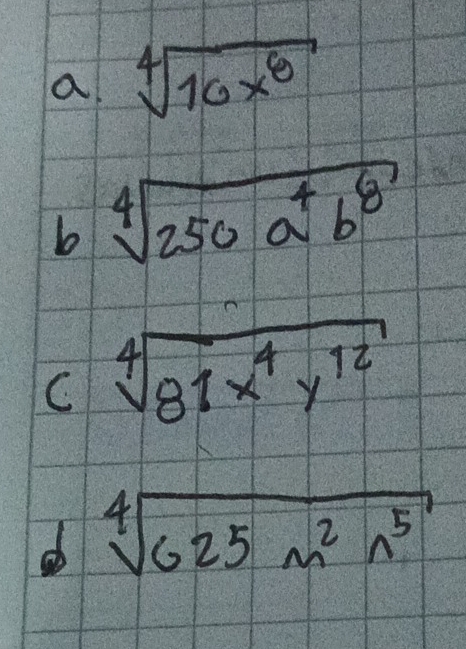 a. ∜(16x⁸)
b ∜(256 a⁴ b⁸)
c ∜(81x⁴ y¹²)
d ∜(625 m² n⁵)